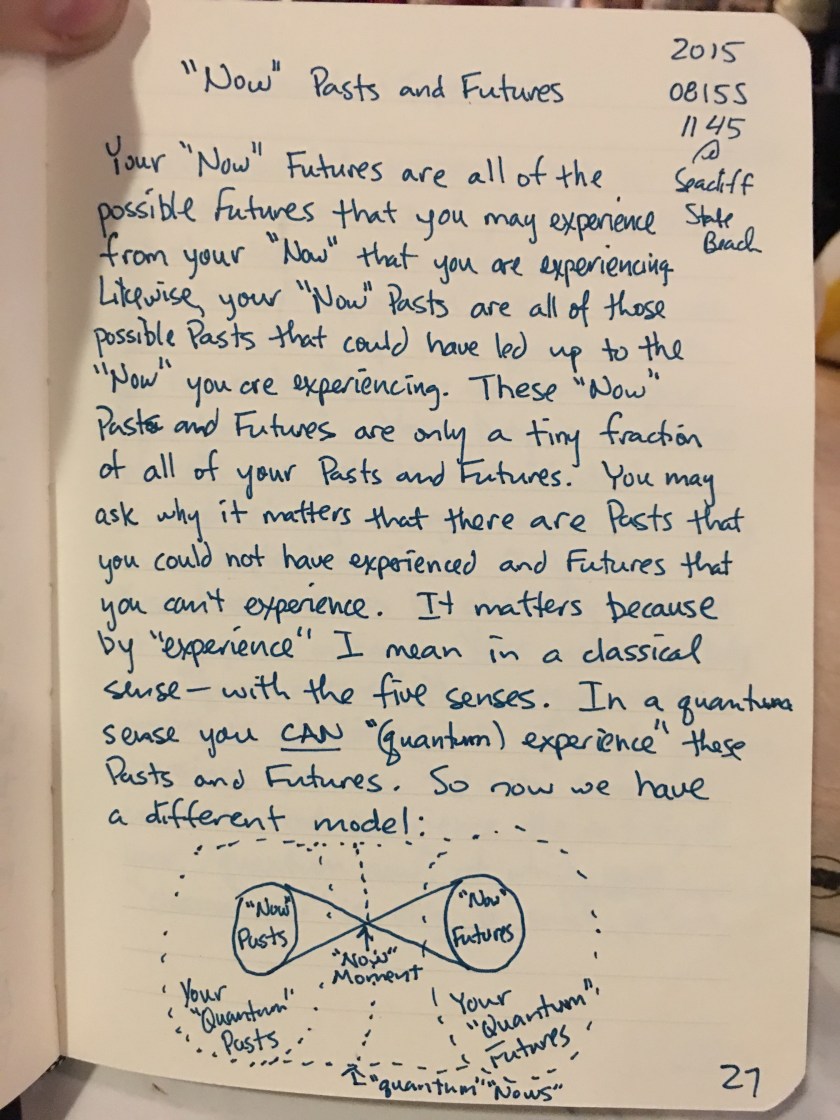 "Now" Pasts and Futures
2015
0815S
1145
@
Seacliff
State
Beach
Your "Now" Futures are all of the
possible Futures that you may experience
from your "Now" that you are experiencing
Likewise, your "Now" Pasts are all of those
possible Pasts that could have led up to the
"Now" you are experiencing. These "Now"
Pasts and Futures are only a tiny fraction
of all of your Pasts and Futures. You may
ask why it matters that there are Pasts that
you could not have experienced and Futures that
you can't experience. It matters because
by "experience" I mean in a classical
sense — with the five senses. In a quantum
sense you CAN "(quantum) experience" these
Pasts and Futures. So now we have
a different model:
"Now"
Pasts
"Now"
Futures
"Now"
Moment
Your
"Quantum"
Pasts
Your
"Quantum"
Futures
"quantum" "Nows"
27